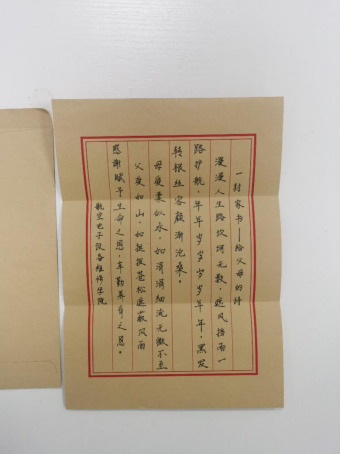 一封家书——给父母的诗
漫漫人生路坎坷无数，遮风挡雨一
路护航，年年岁岁岁岁年年，黑发
转银丝容颜渐沧桑。
母爱柔似水，如涓涓细流无微不至
父爱如山，如挺拔苍松遮蔽风雨
感谢赋予生命之恩，辛勤养育之恩。
航空电子设备维修学院